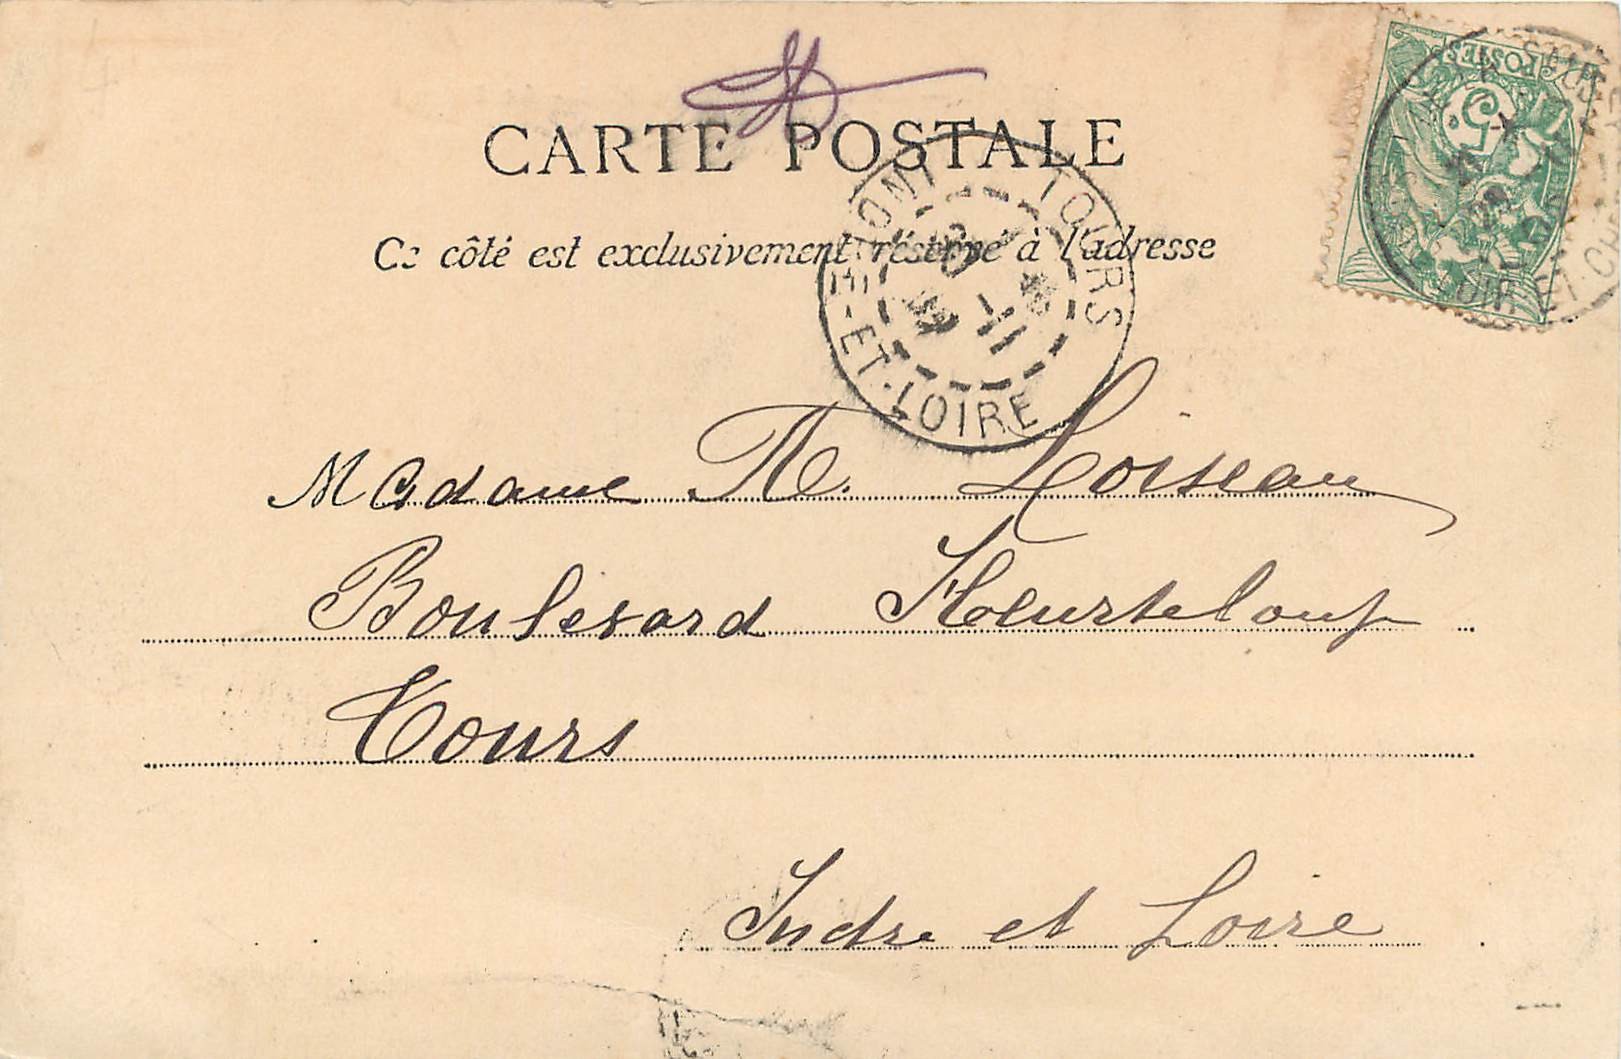 CARTE POSTALE
Ce côté est exclusivement réservé à l'adresse
TOURS
INDRE-ET-LOIRE
POSTES
5
LOIR-ET-CHER
Madame R. Loiseau
Boulevard Heurteloup
Tours
Indre et Loire